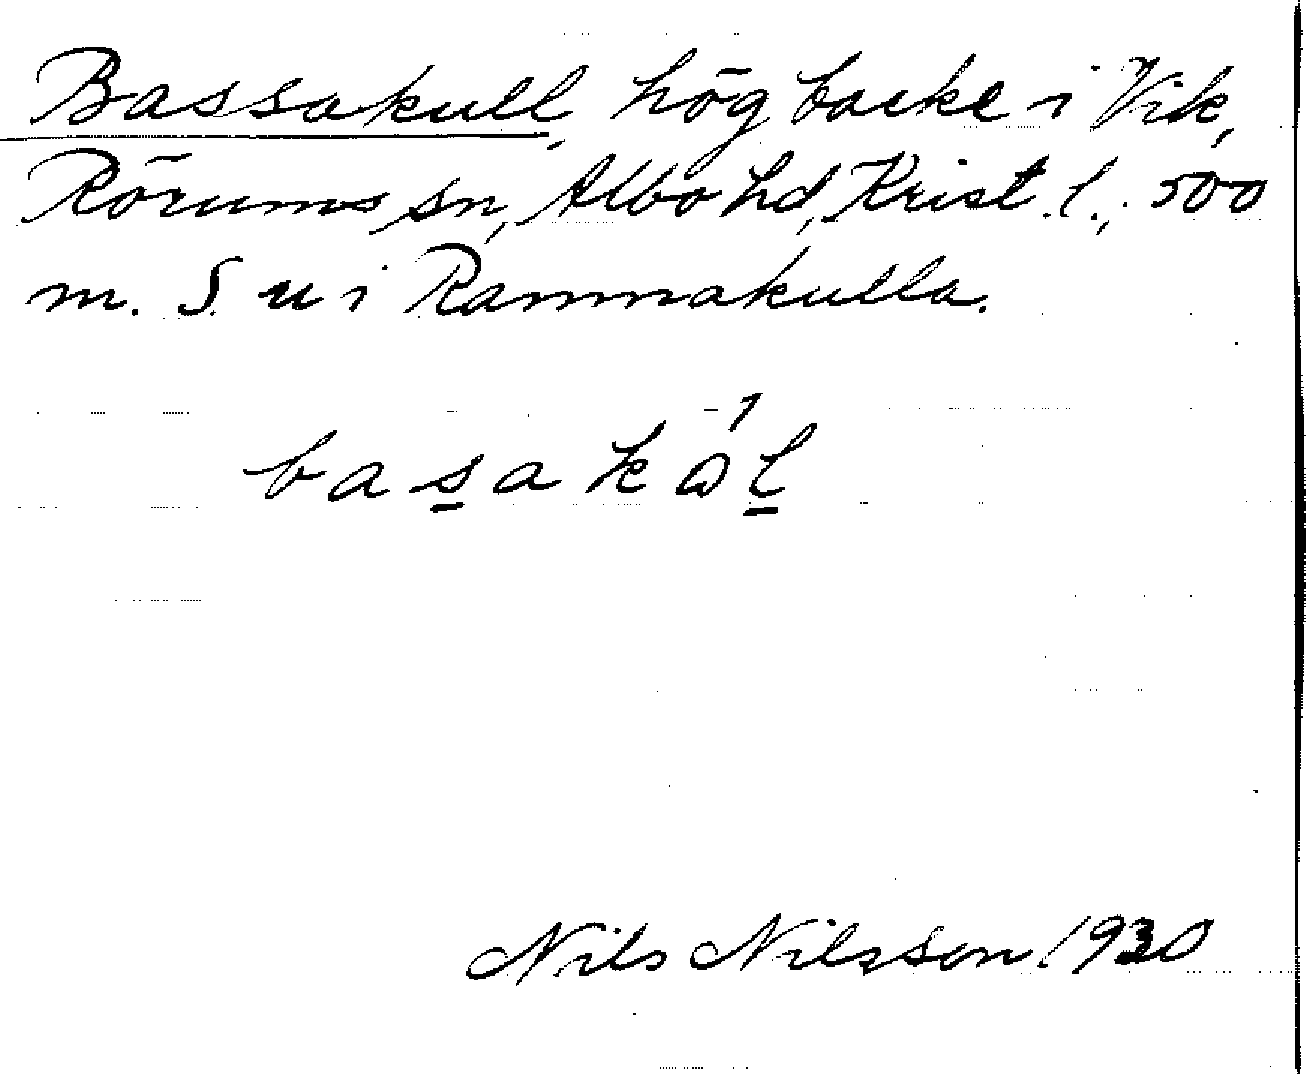 Bassakull, hög backe i Vik,
Rörums sn, Albo hd, Krist. l., 500
m. S u i Rammakulla.
basakωl
Nils Nilsson 1930